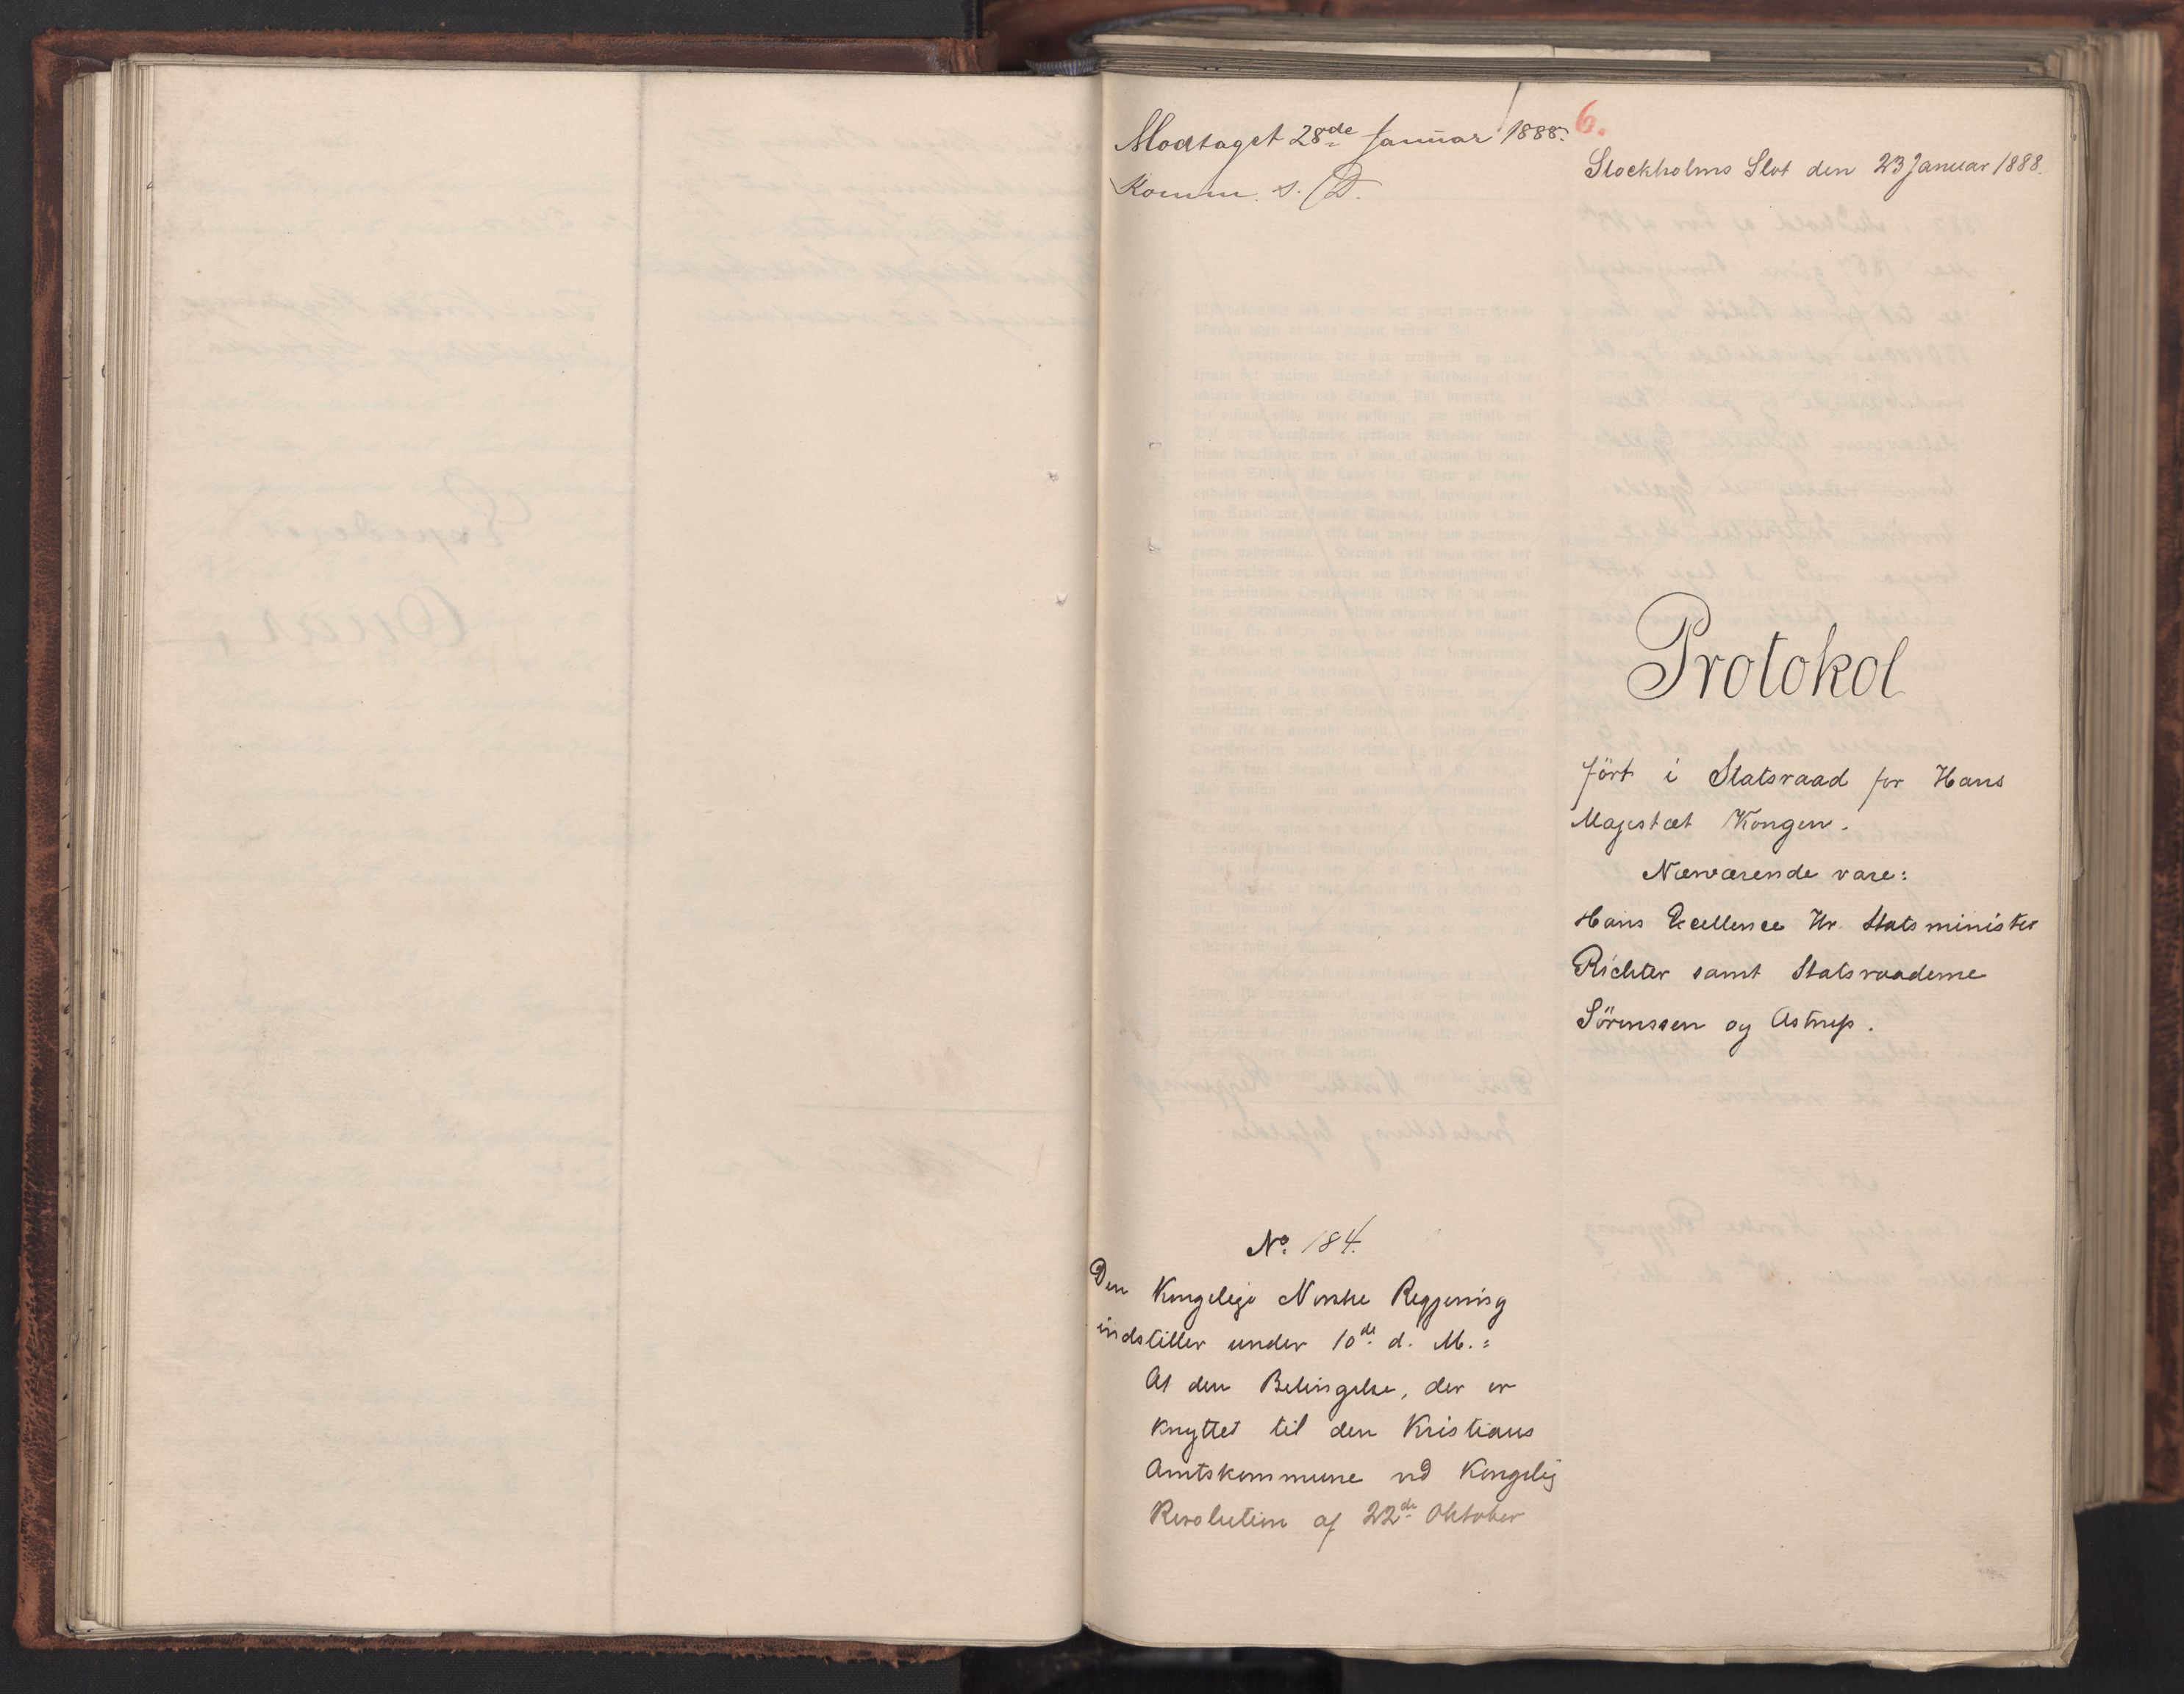 Modtaget 28de Januar 1888.
Komm. s. D.
6.
Stockholms Slot den 23 Januar 1888.
Protokol
fört i Statsraad for Hans
Majestæt Kongen.
Nærværende vare:
Hans Excellence Hr. Statsminister
Richter samt Statsraaderne
Sörenssen og Astrup.
No. 184.
Den Kongelige Norske Regjering
indstiller under 10de d. M.:
At den Betingelse, der er
knyttet til den Kristians
Amtskommune ved Kongelig
Resolution af 22de Oktober